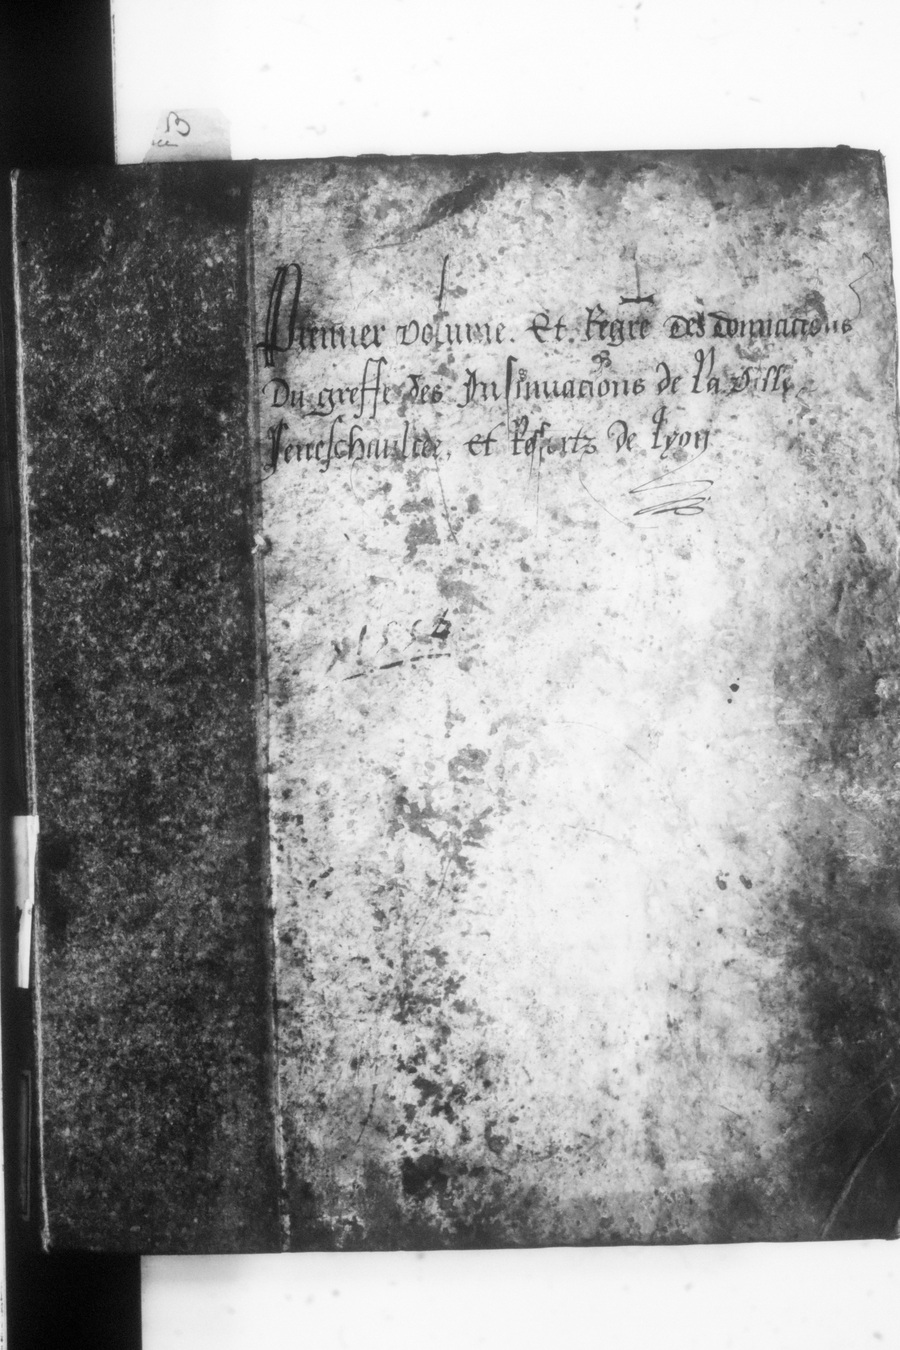 B
Premier volume. Et. Regre des donnacions
Du greffe des Insinuacions de la Ville
Seneschaulcee, et Ressortz de Lyon